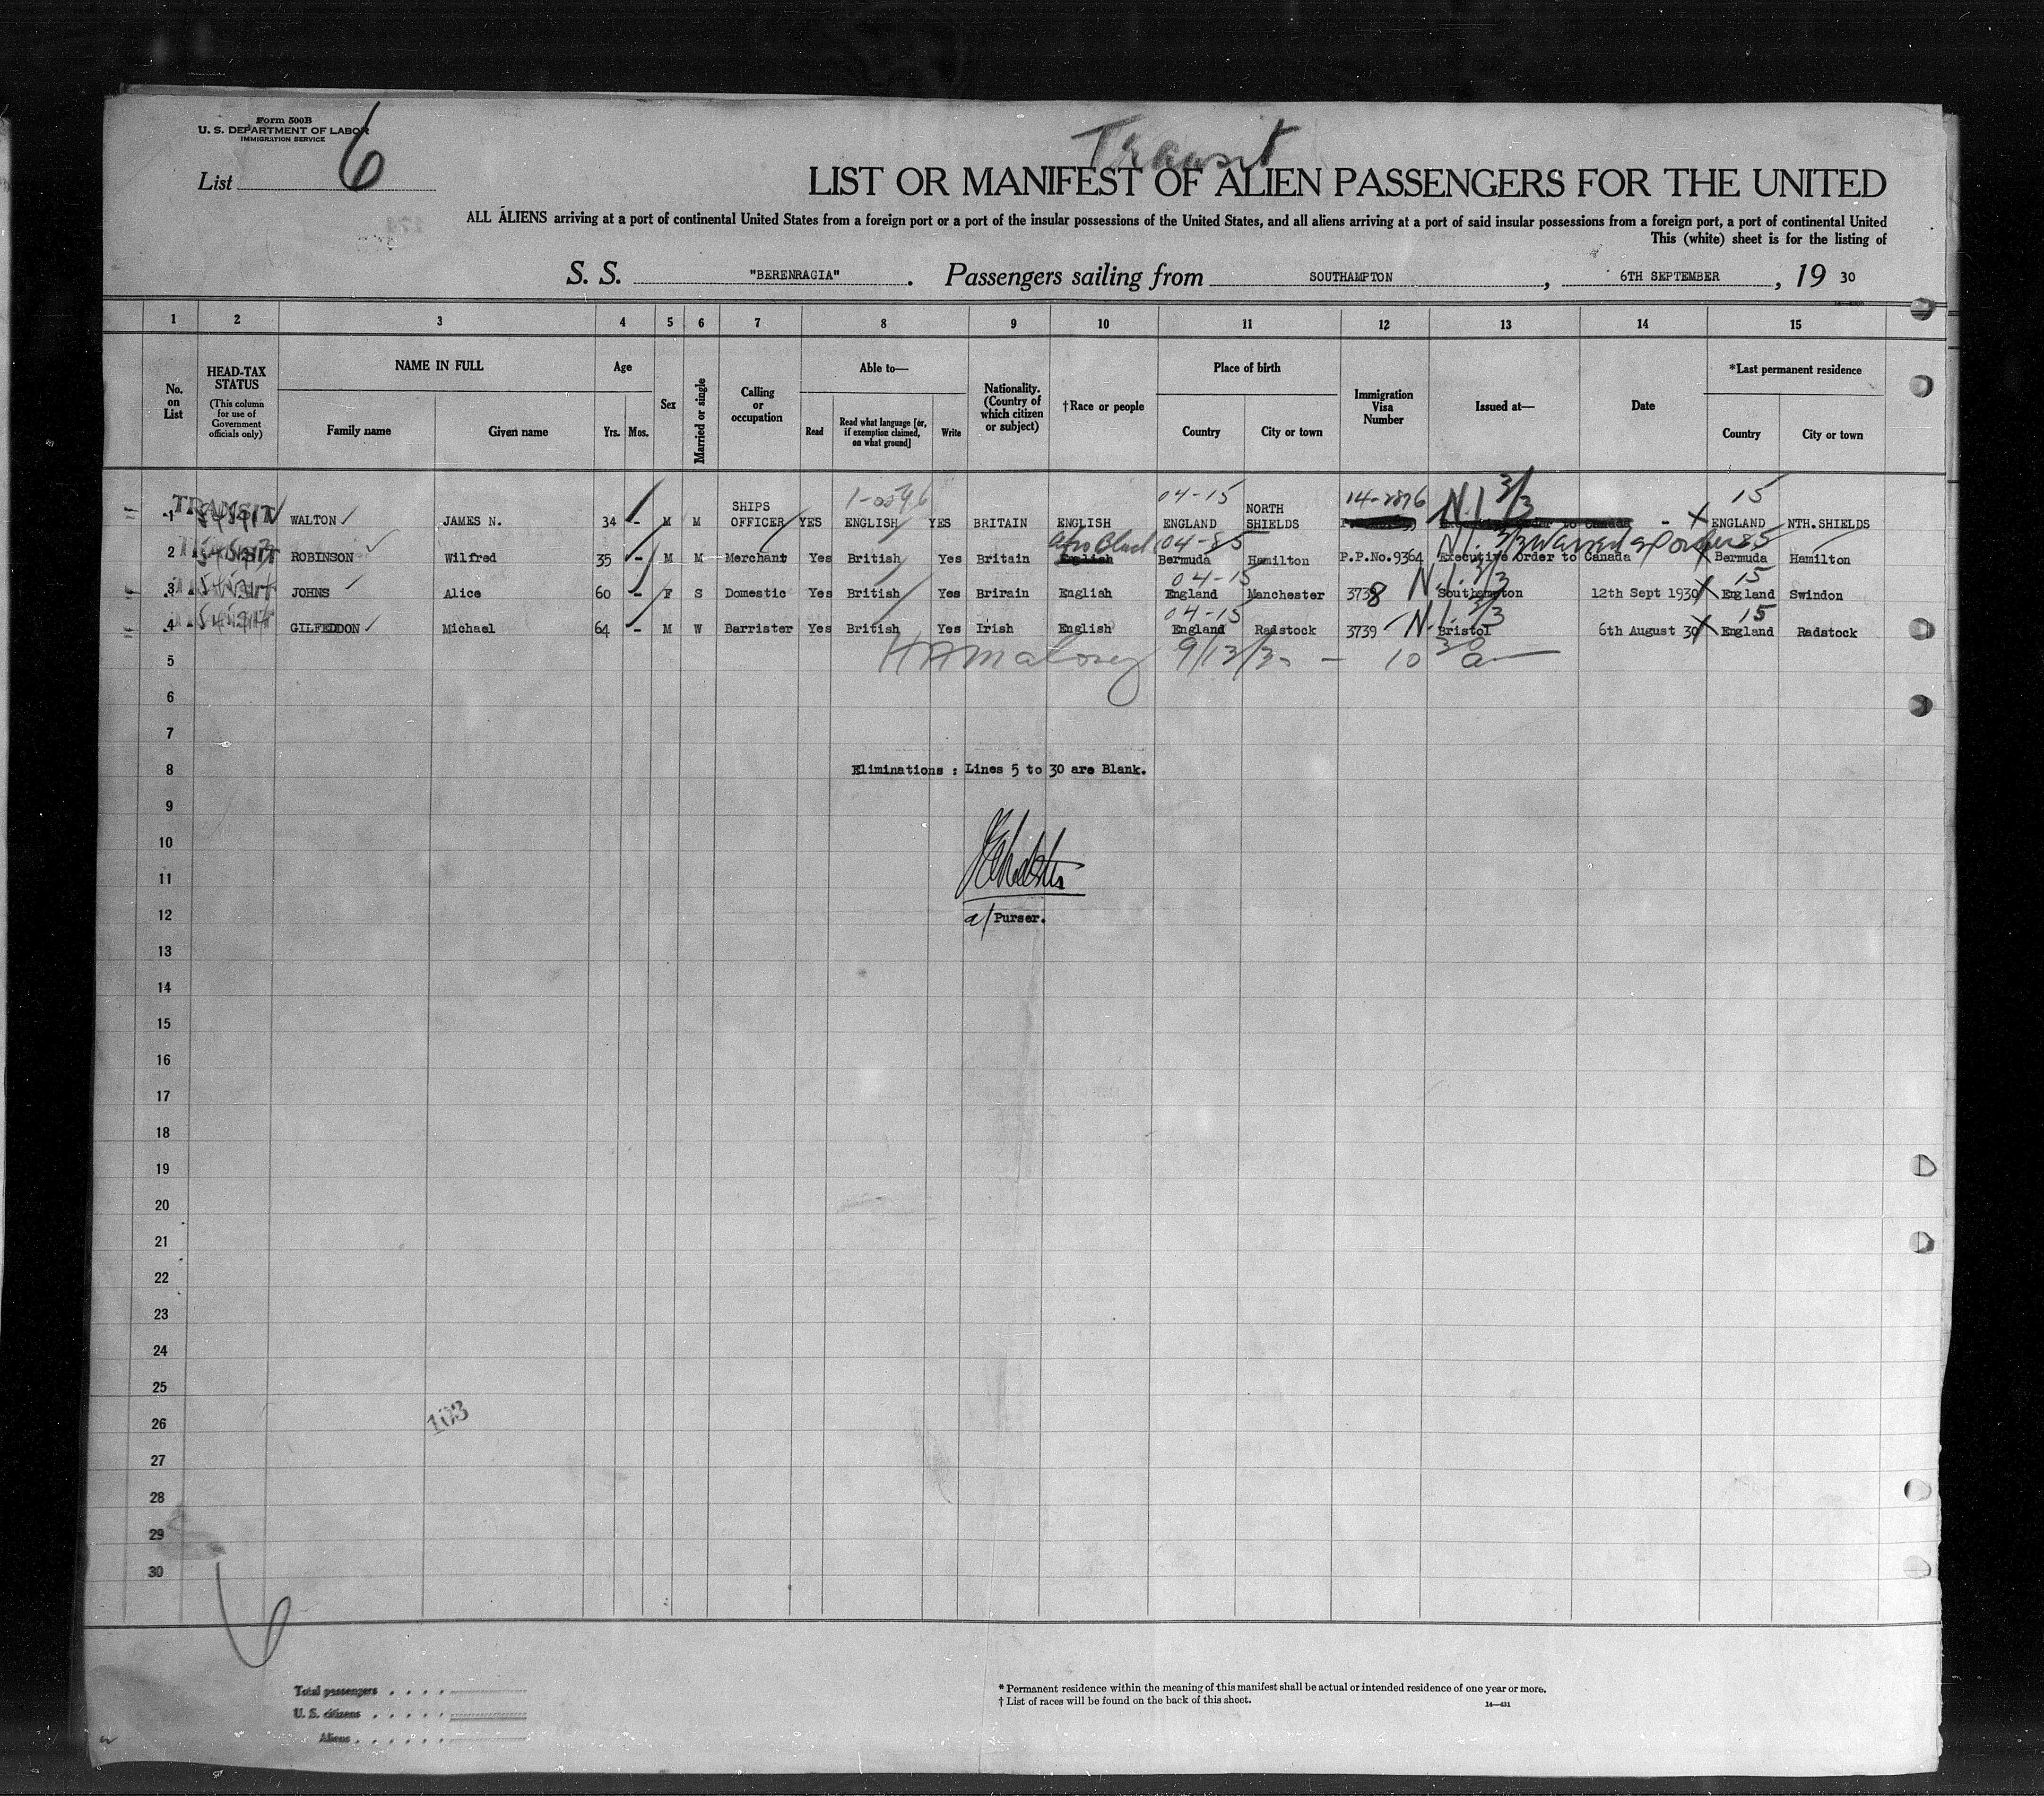 Form 500B
U. S. DEPARTMENT OF LABOR
IMMIGRATION SERVICE
List 6
Transit
LIST OR MANIFEST OF ALIEN PASSENGERS FOR THE UNITED
ALL ALIENS arriving at a port of continental United States from a foreign port or a port of the insular possessions of the United States, and all aliens arriving at a port of said insular possessions from a foreign port, a port of continental United
This (white) sheet is for the listing of
S. S. "BERENRAGIA". Passengers sailing from SOUTHAMPTON, 6TH SEPTEMBER, 19 30
1 2 3 4 5 6 7 8 9 10 11 12 13 14 15
No. on List
HEAD-TAX STATUS
(This column for use of Government officials only)
NAME IN FULL
Family name Given name
Age
Yrs. Mos.
Sex
Married or single
Calling or occupation
Able to—
Read
Read what language [or, if exemption claimed, on what ground]
Write
Nationality. (Country of which citizen or subject)
†Race or people
Place of birth
Country City or town
Immigration Visa Number
Issued at—
Date
*Last permanent residence
Country City or town
04-15 14-2876 N.I. 3/3 15
1 TRANSIT WALTON JAMES N. 34 - M M SHIPS OFFICER YES ENGLISH YES BRITAIN ENGLISH ENGLAND NORTH SHIELDS Order to Canada - X ENGLAND NTH.SHIELDS
Afro Black 04-85 85
2 ROBINSON Wilfred 35 - M M Merchant Yes British Yes Britain English Bermuda Hamilton P.P.No.9364 Executive Order to Canada Bermuda Hamilton
04-15 N.I. 3/3 15
3 JOHNS Alice 60 - F S Domestic Yes British Yes Brirain English England Manchester 3738 Southampton 12th Sept 1930 X England Swindon
04-15 N.I. 3/3 15
4 GILFEDDON Michael 64 - M W Barrister Yes British Yes Irish English England Radstock 3739 Bristol 6th August 30 X England Radstock
5 9/13/30 - 10 30 a
6
7
8 Eliminations : Lines 5 to 30 are Blank.
9
10
11
12 a/ Purser.
13
14
15
16
17
18
19
20
21
22
23
24
25
26 103
27
28
29
30
Total passengers
U. S. citizens
Aliens
* Permanent residence within the meaning of this manifest shall be actual or intended residence of one year or more.
† List of races will be found on the back of this sheet.
14—431